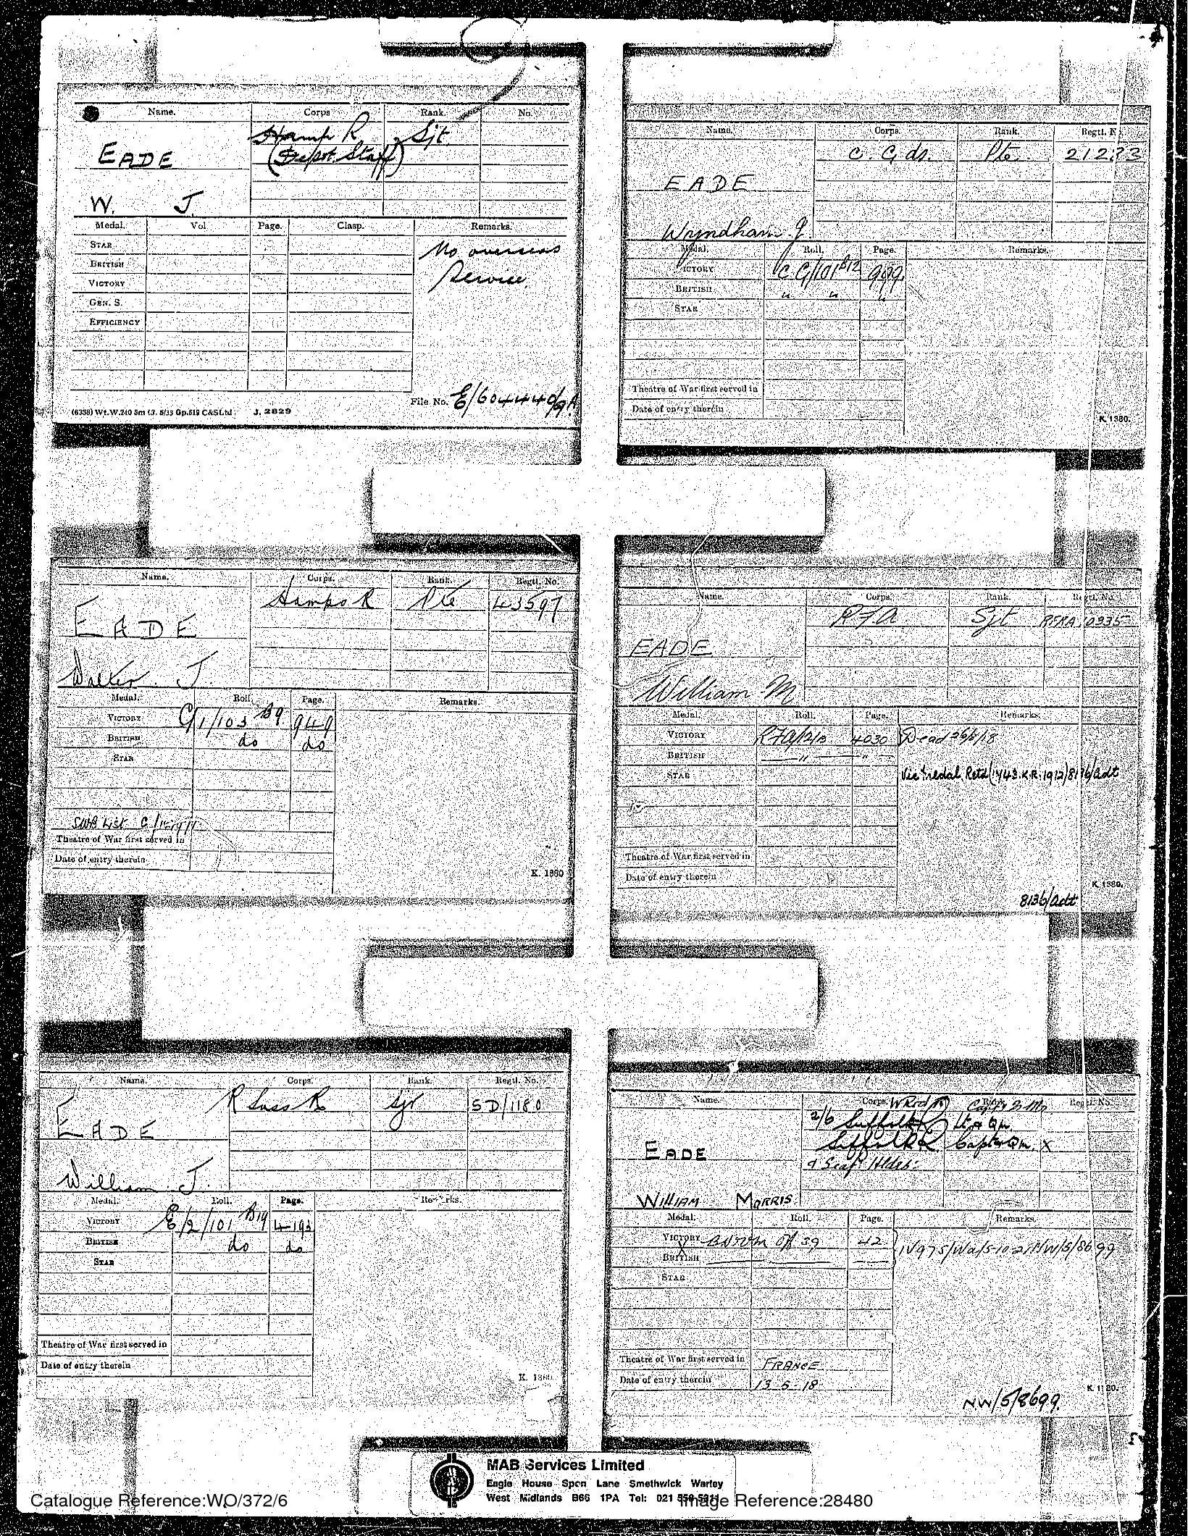 Name. Corps Rank. No.
EADE Hamp R Sjt.
(Depot Staff)
W. J
Medal. Vol Page. Clasp. Remarks.
STAR No overseas
BRITISH Service
VICTORY
GEN. S.
EFFICIENCY
File No. E/60444D/9A
J. 2829
Name. Corps. Rank. Regtl. No.
C. Gds. Pte
EADE
Wyndham J.
Medal. Roll. Page. Remarks.
VICTORY CG/101B12
BRITISH " " "
STAR
Theatre of War first served in
Date of entry therein
K. 1380.
Name. Corps. Rank. Regtl. No.
EADE Hamps R Pte 43597
Walter J.
Medal. Roll. Page. Remarks.
VICTORY C/1/103 B9 949
BRITISH do do
STAR
SWB List
Theatre of War first served in
Date of entry therein
K. 1380
Name. Corps. Rank. Regtl. No.
RFA Sjt
EADE
William M
Medal. Roll. Page. Remarks.
VICTORY 4030 Dead
BRITISH " "
STAR Vic Medal Retd (1743.K.R.1912) 8136/Adt
Theatre of War first served in
Date of entry therein
K. 1380.
8136/Adt
Name. Corps. Rank. Regtl. No.
EADE R Suss R Sjt SD/1180
William J.
Medal. Roll. Page. Remarks.
VICTORY E/2/101 B19
BRITISH do do
STAR
Theatre of War first served in
Date of entry therein
K. 1380
Name. Corps. Rank. Regtl. No.
2/6 Suffolk R Lt & Qm.
EADE Suffolk R Capt & Qm. X
WILLIAM MORRIS.
Medal. Roll. Page. Remarks.
VICTORY 39 42
BRITISH
STAR
Theatre of War first served in FRANCE
Date of entry therein 13-5-18
NW/5/8699.
MAB Services Limited
Eagle House Spon Lane Smethwick Warley
West Midlands B66 1PA Tel: 021
Catalogue Reference:WO/372/6 Image Reference:28480